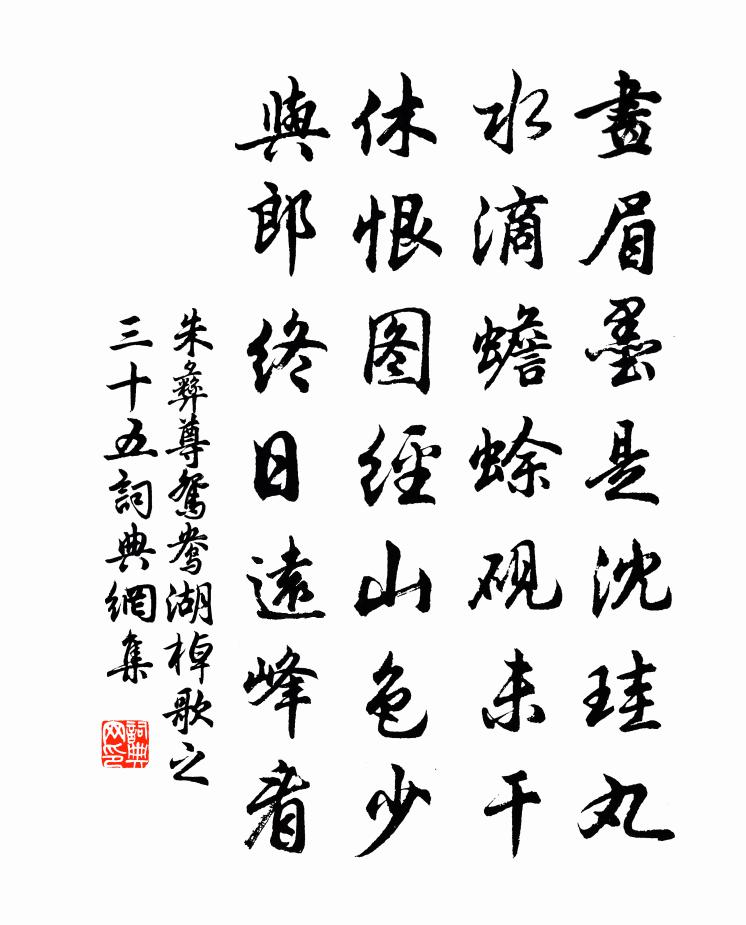 畫眉墨是沈珪丸
水滴蟾蜍硯未干
休恨图經山色少
與郎終日遠峰看
朱彝尊鴛鴦湖棹歌之
三十五詞典網集
詞典
网印